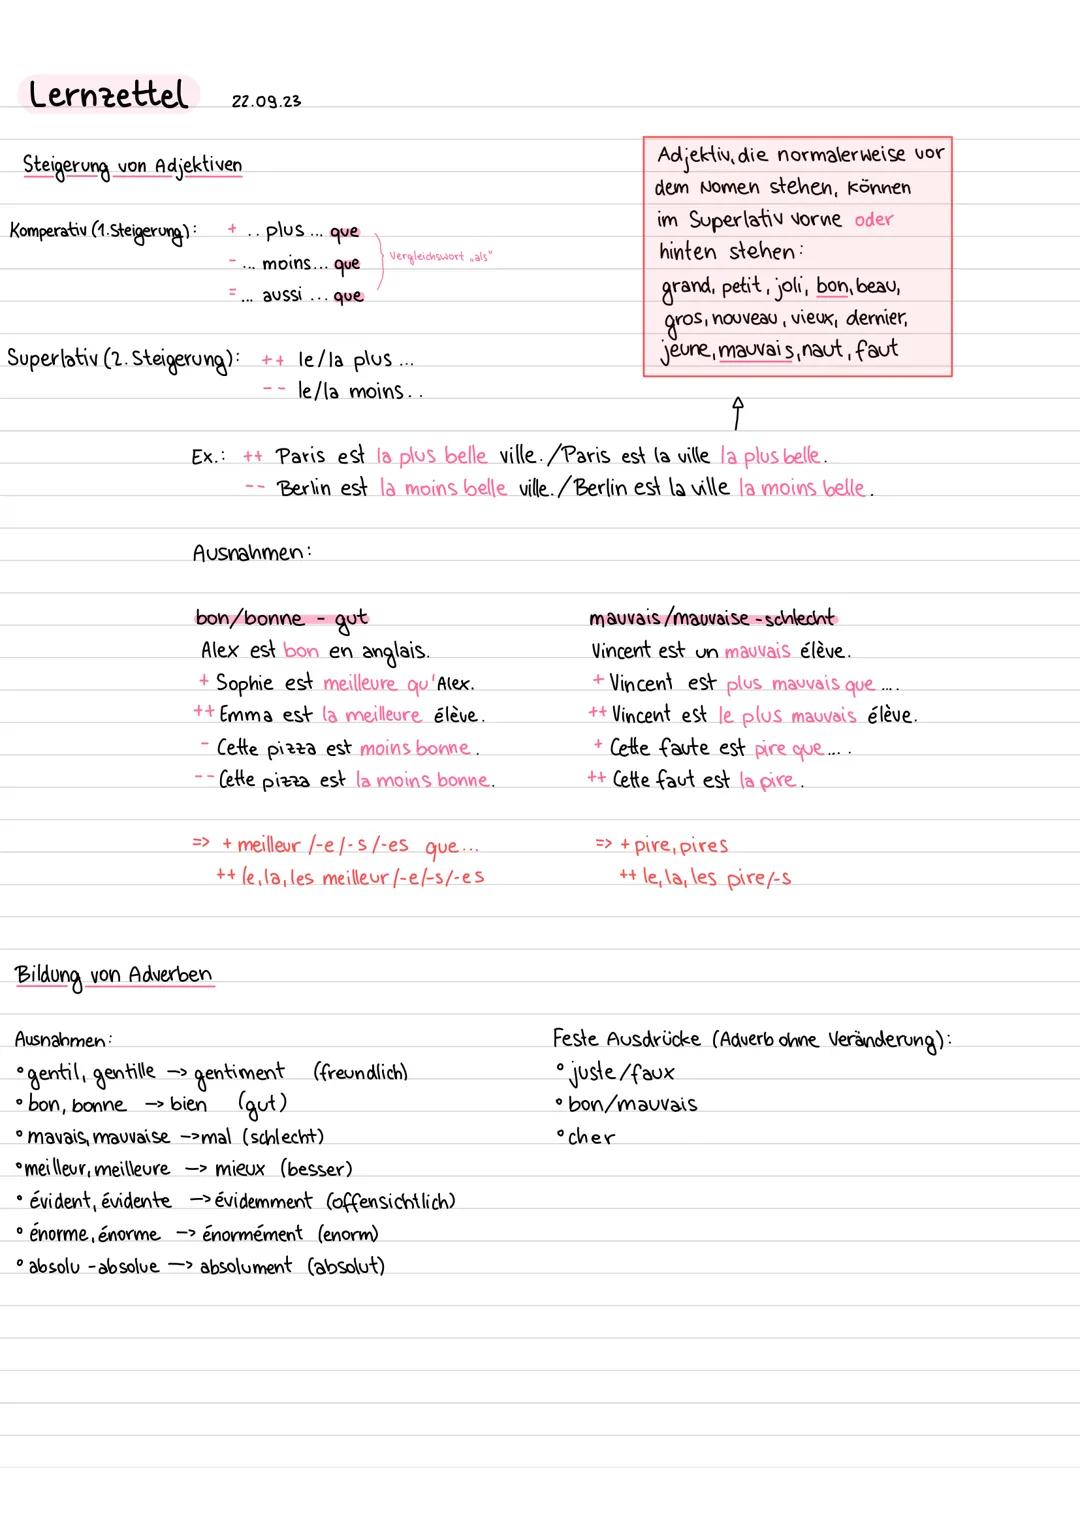 Lernzettel 22.09.23
Steigerung von Adjektiven
Komperativ (1.Steigerung): + .. plus ... que
- ... moins... que
= ... aussi ... que
Vergleichswort „als"
Superlativ (2. Steigerung): ++ le/la plus ...
-- le/la moins..
Adjektiv, die normalerweise vor
dem Nomen stehen, können
im Superlativ vorne oder
hinten stehen:
grand, petit, joli, bon, beau,
gros, nouveau, vieux, dernier,
jeune, mauvais, naut, faut
Ex.: ++ Paris est la plus belle ville./Paris est la ville la plus belle.
-- Berlin est la moins belle ville./Berlin est la ville la moins belle.
Ausnahmen:
bon/bonne - gut
Alex est bon en anglais.
+ Sophie est meilleure qu'Alex.
++ Emma est la meilleure élève.
- Cette pizza est moins bonne.
-- Cette pizza est la moins bonne.
=> + meilleur /-e/-s/-es que...
++ le, la, les meilleur/-e/-s/-es
mauvais/mauvaise - schlecht
Vincent est un mauvais élève.
+ Vincent est plus mauvais que ....
++ Vincent est le plus mauvais élève.
+ Cette faute est pire que... .
++ Cette faut est la pire.
=> + pire, pires
++ le, la, les pire/-s
Bildung von Adverben
Ausnahmen:
° gentil, gentille -> gentiment (freundlich)
° bon, bonne -> bien (gut)
° mavais, mauvaise -> mal (schlecht)
° meilleur, meilleure -> mieux (besser)
° évident, évidente -> évidemment (offensichtlich)
° énorme, énorme -> énormément (enorm)
° absolu - absolue -> absolument (absolut)
Feste Ausdrücke (Adverb ohne Veränderung):
° juste/faux
° bon/mauvais
° cher